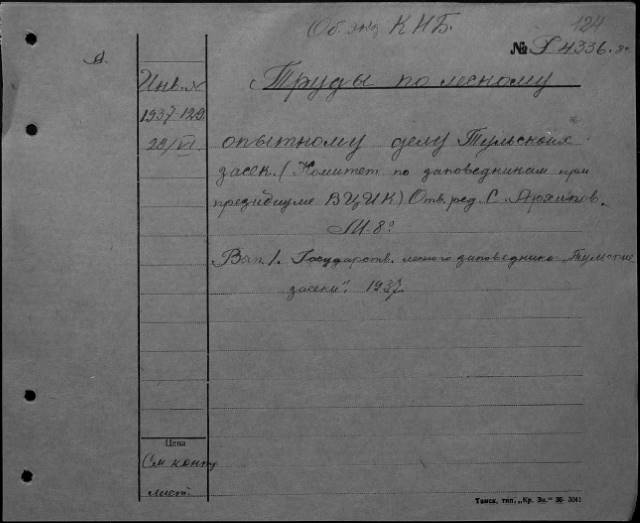 Об. экз КНБ.
124
А.
№ 4336.
Инв. №
Труды по лесному
1937-129
28/VI.
опытному делу Тульских
засек. (Комитет по заповедникам при
президиуме ВЦИК) Отв. ред. С. Архипов.
М. 8º
Вып. 1. Государств. лесного заповедника „Тульские
засеки". 1937.
Цена
См конт
лист.
Томск, тип. „Кр. Зн." 36- 3041